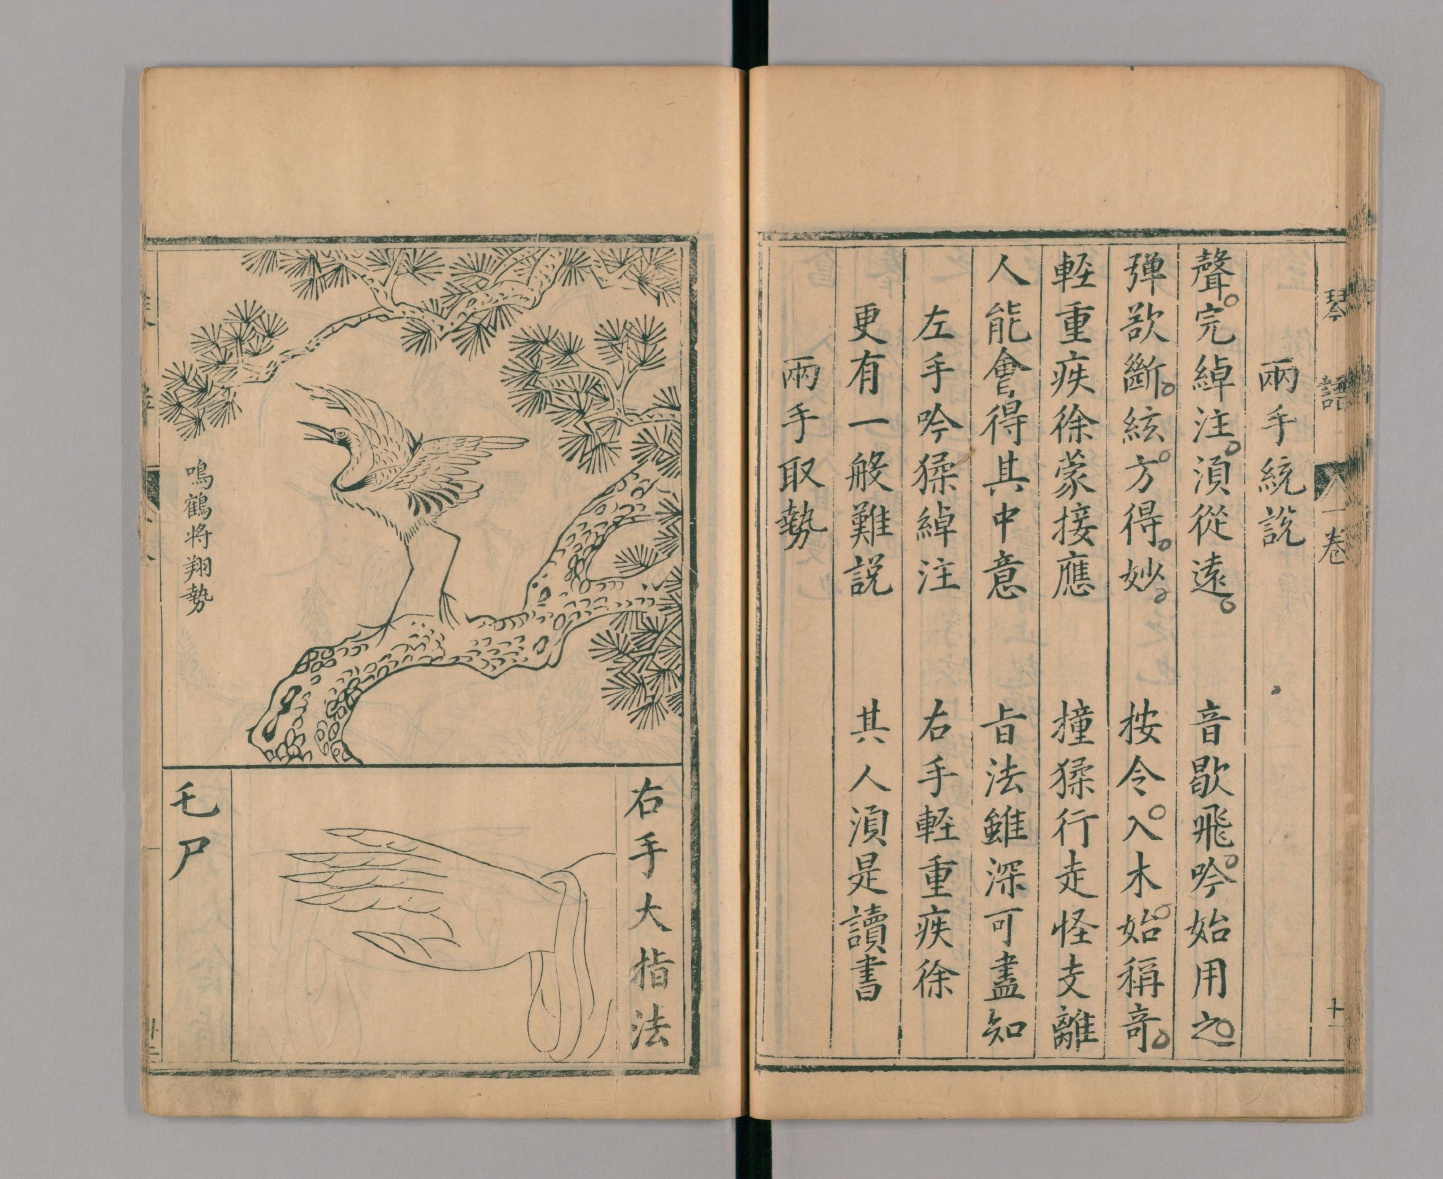 琴譜 一卷 十一
兩手統說
聲完綽注湏從遠 音歇飛吟始用之
彈欲斷絃方得妙 按令入木始稱奇
輕重疾徐蒙接應 撞猱行走怪支離
人能會得其中意 旨法雖深可盡知
左手吟猱綽注 右手輕重疾徐
更有一般難説 其人湏是讀書
兩手取勢
鳴鶴將翔勢
右手大指法
乇尸